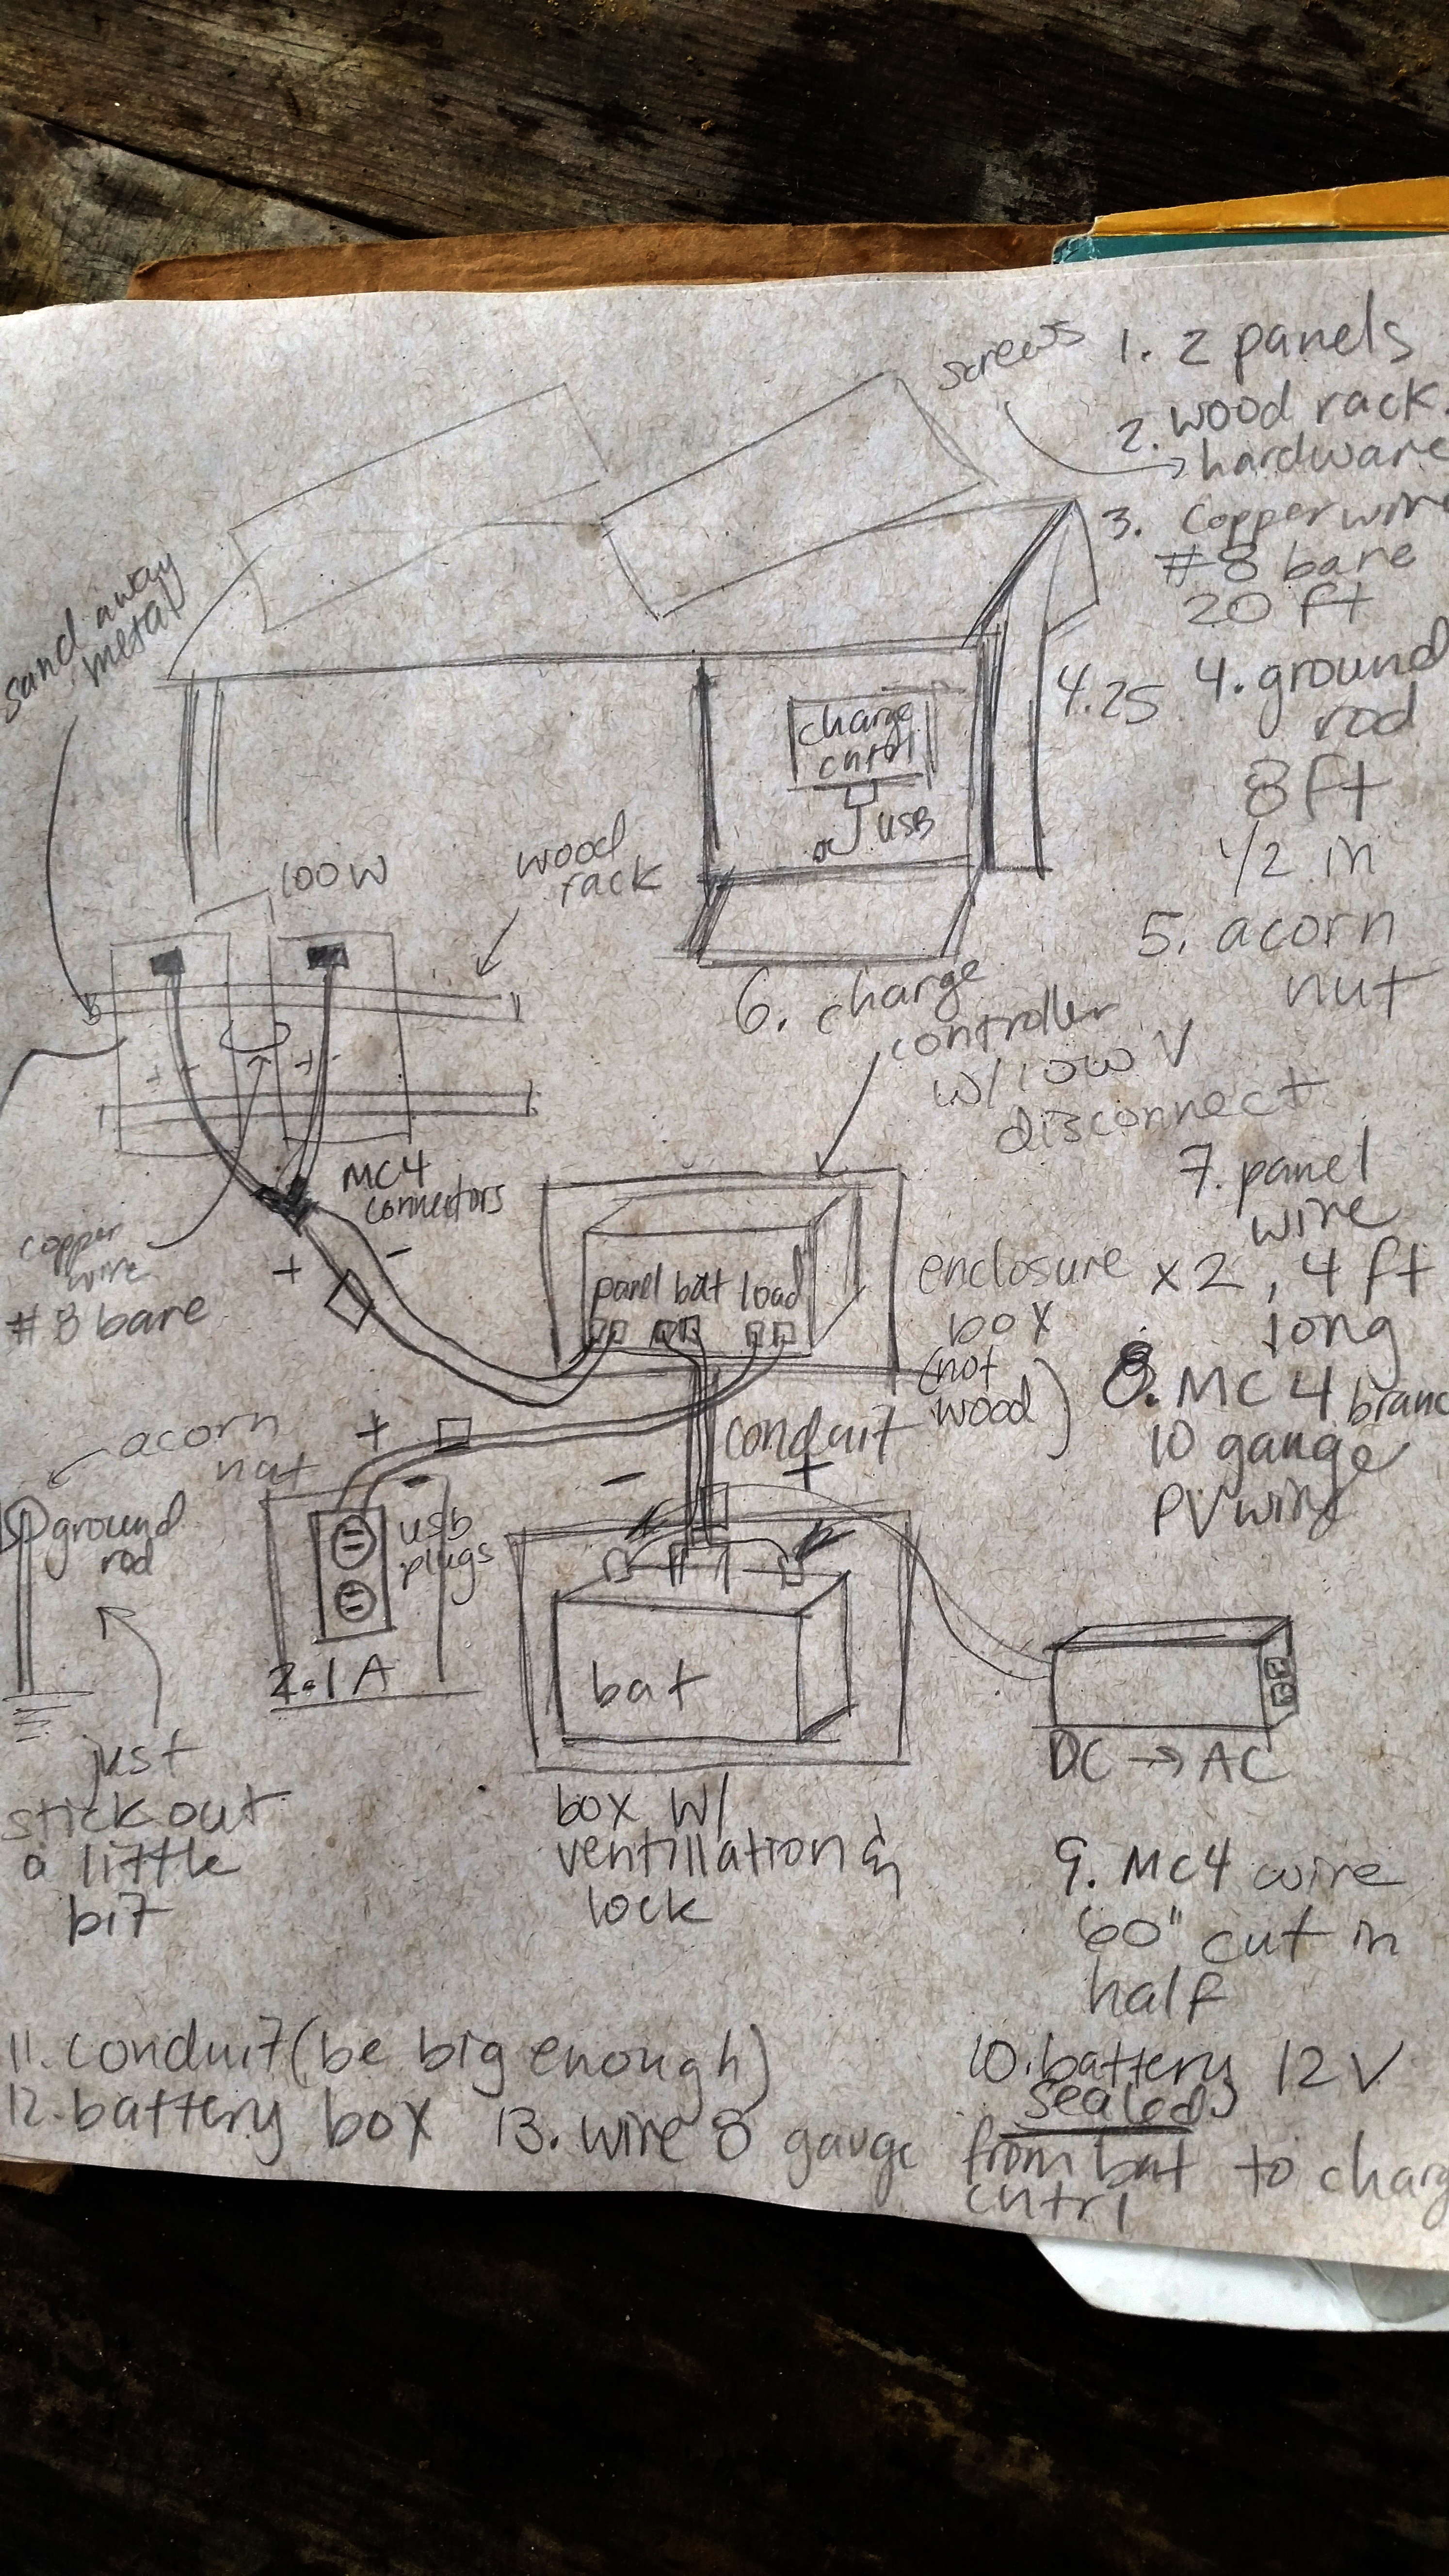 screws
1. 2 panels
2. wood rack.
hardware
3. Copper wire
#8 bare
20 ft
sand away
metal
4.25
4. ground
rod
8 ft
1/2 in
charge
cntrl
USB
100W
wood
rack
5. acorn
nut
6. charge
controller
w/ low V
disconnect
+ -
+ -
MC4
connectors
7. panel
wire
x2, 4 ft
long
copper
wire
#8 bare
+
-
panel bat load
enclosure
box
(not
wood)
8. MC4 branc
10 gauge
PV wire
acorn
nut
+
-
conduit
-
+
ground
rod
usb
plugs
2.1A
bat
just
stick out
a little
bit
DC → AC
box w/
ventillation &
lock
9. MC4 wire
60" cut in
half
10. battery 12V
sealed
11. conduit (be big enough)
12. battery box
13. wire 8 gauge from bat to charg
cntrl